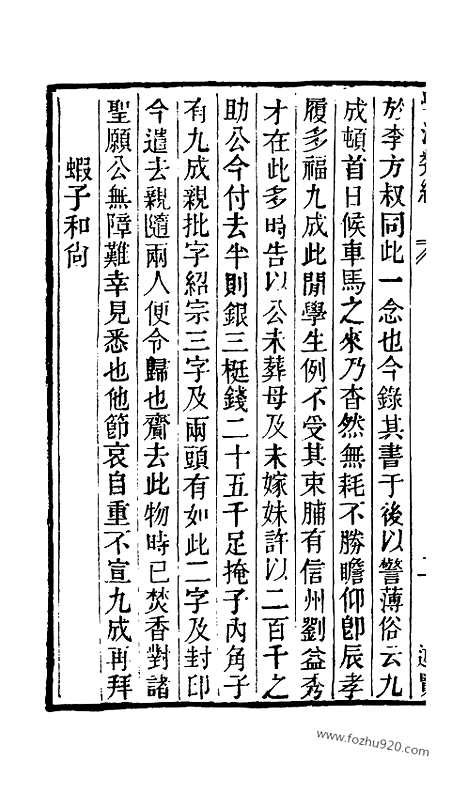 於李方叔同此一念也今錄其書于後以警薄俗云九
成頓首日候車馬之來乃杳然無耗不勝瞻仰卽辰孝
履多福九成此閒學生例不受其束脯有信州劉益秀
才在此多時告以公未葬母及未嫁妹許以二百千之
助公今付去半則銀三梃錢二十五千足掩子內角子
有九成親批字紹宗三字及兩頭有如此二字及封印
今遣去親隨兩人便令歸也齎去此物時已焚香對諸
聖願公無障難幸見悉也他節哀自重不宣九成再拜
蝦子和尙
www.fozhu920.com